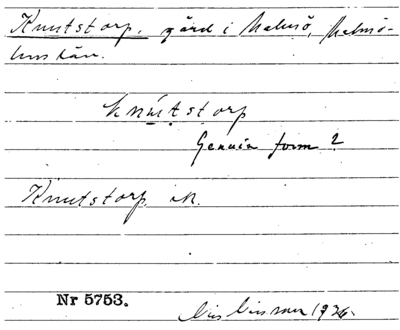 Knutstorp. gård i Malmö, Malmö-
hus län.
knutstorp
Genuin form?
Knutstorp
Nr 5753.
193